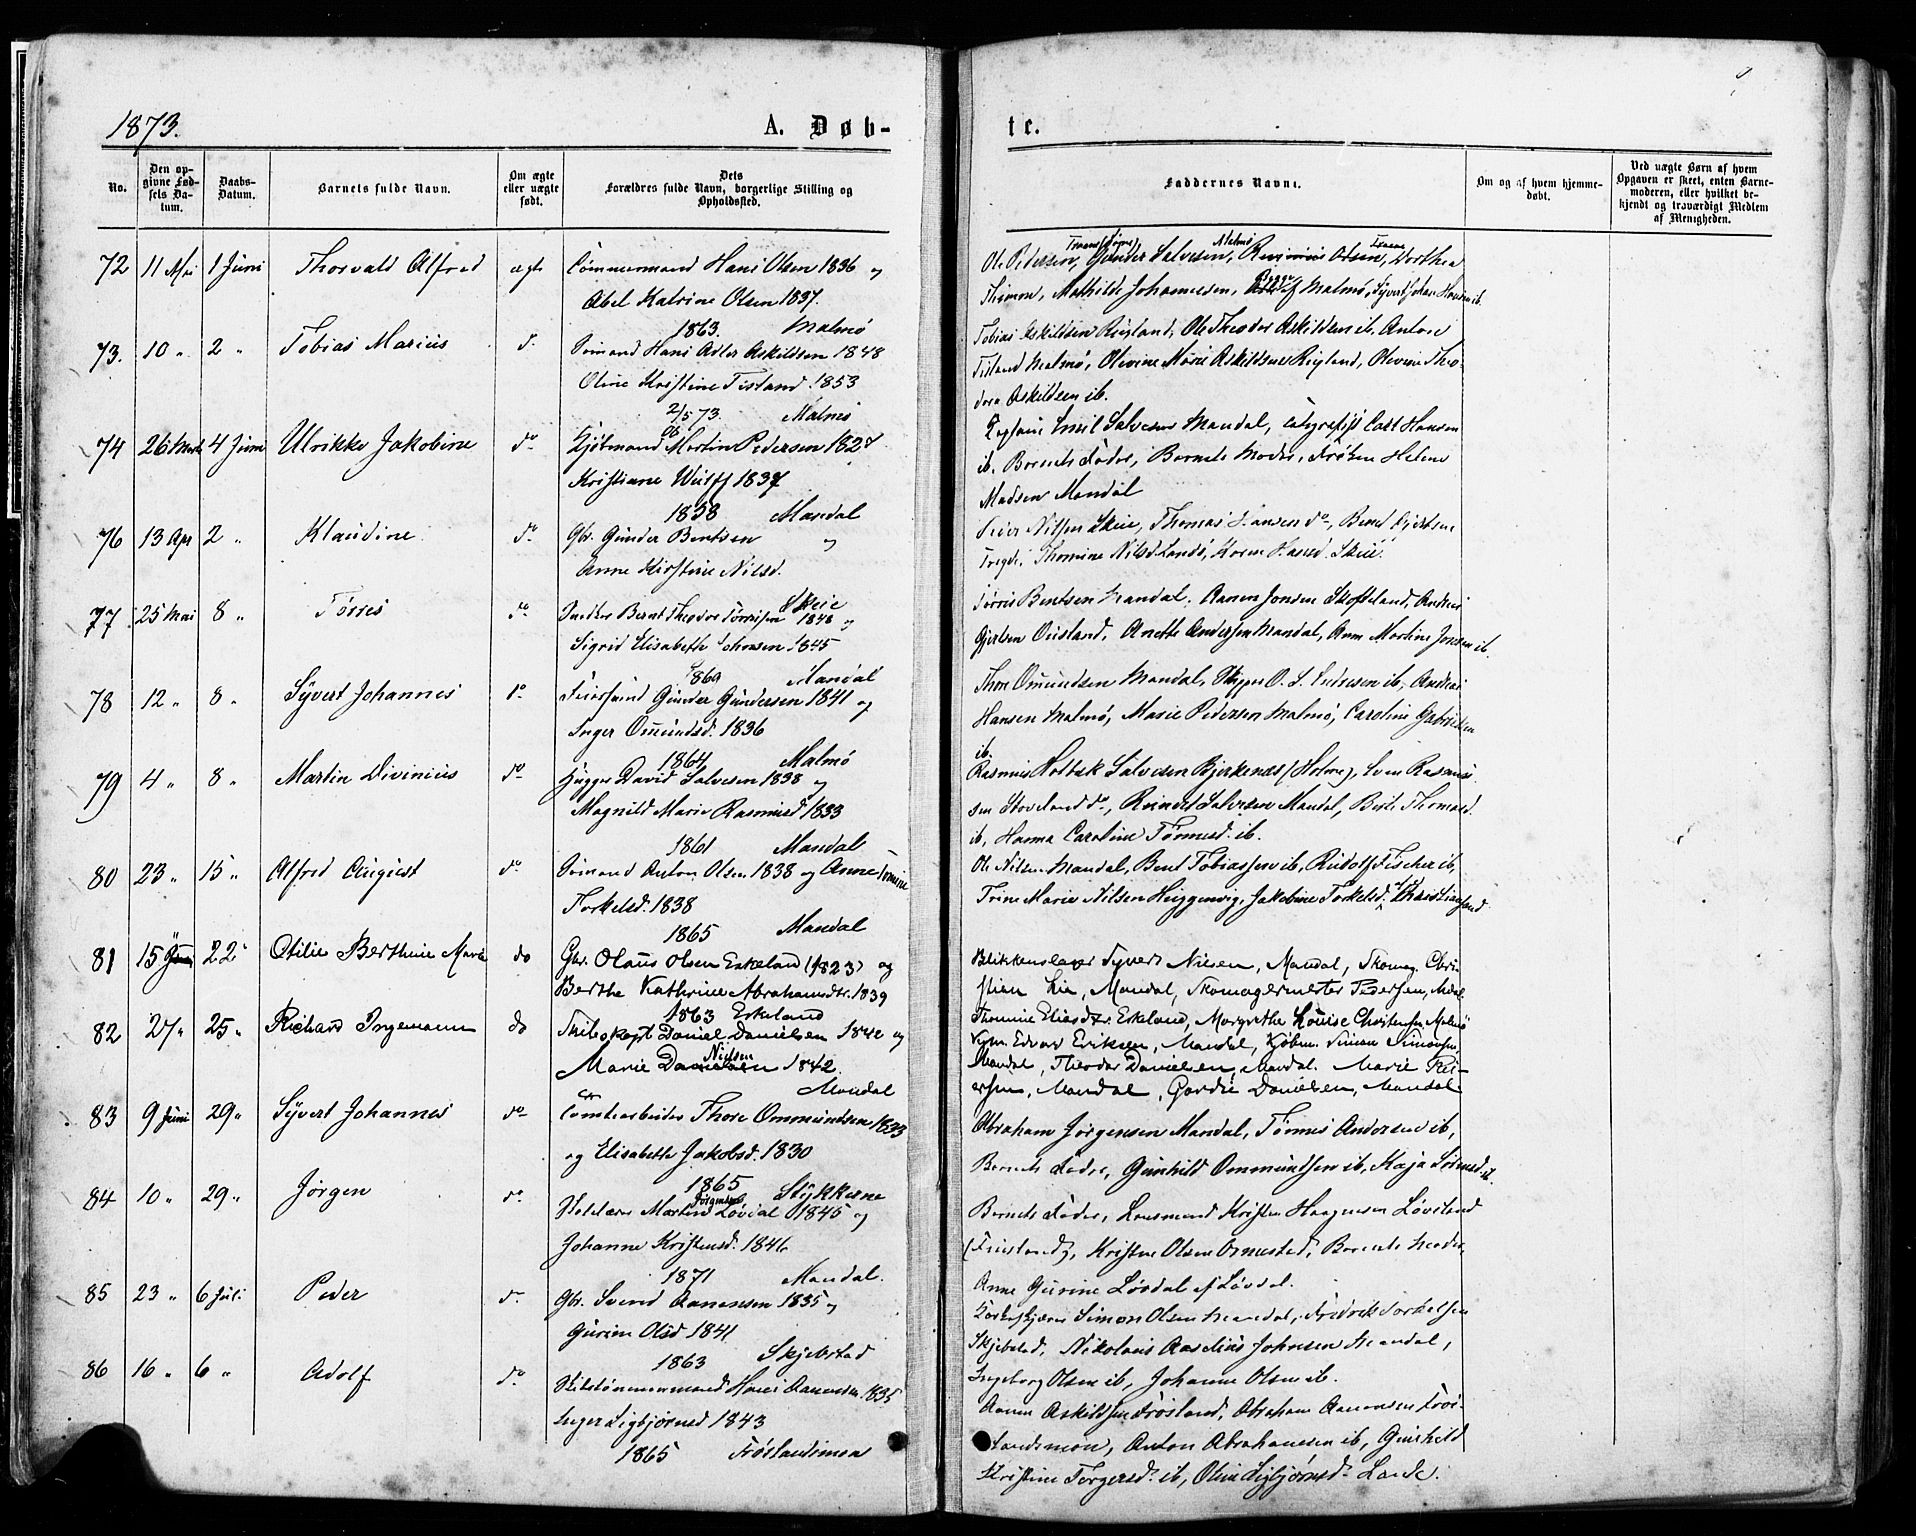 1873.
A. Døb-
te.
No.
Den op-
givne Fød-
sels Da-
tum.
Daabs-
Datum.
Barnets fulde Navn.
Om ægte
eller uægte
født.
Dets
Forældres fulde Navn, borgerlige Stilling og
Opholdssted.
Faddernes Navne.
Om og af hvem hjemme-
døbt.
Ved uægte Børn af hvem
Opgaven er skeet, enten Barne-
moderen, eller hvilket be-
kjendt og troværdigt Medlem
af Menigheden.
72 11 Mai 1 Juni Thorvald Alfred ægte Tømmermand Hans Olsen 1836 og
Abel Katrine Olsen 1837.
1863 Malmø
Ole Pedersen, Gunder Salvesen, Olsen, Dorthea
Mathilde Johannesen, Malmø, Syvert Johan Hansen ib.
73. 10 " 2 " Tobias Marius do Sømand Hans Adler Askildsen 1848
Oline Kristine Tisland 1853
2/5 73. Malmø
Tobias Askildsen Rigland, Ole Theodor Askildsen ib, Anton
Tisland Malmø, Olivine Marie Askildsen Rigland, Olevine Theo-
dora Askildsen ib.
74 26 Marts 4 Juni Ulrikke Jakobine do Kjøbmand Martin Pedersen 1827 og
Kristiane Wulff 1837
1858 Mandal
Kaptain Emil Salvesen Mandal, Telegrafist Carl Hansen
ib. Barnets Fader, Barnets Moder, Frøken Helene
Madsen Mandal
76 13 Apr 2 " Klaudine do Gbr. Gunder Bentsen og
Anne Kirstine Nilsd.
Skeie
Peder Nilsen Skeie, Thomas Hansen do, Bent
Tregde, Thomine Nilsd Landø, Karen Hansd. Skeie.
77 25 Mai 8 " Tørres do Snedker Bernt Theodor Tørresen 1848 og
Sigrid Elisabeth Johnsen 1845
1869 Mandal
Tørris Bentsen Mandal. Aanen Jonsen Skofteland, Andreas
Gjertsen Oisland, Anette Andersen Mandal, Ane Martine Jonsen ib.
78 12 " 8 " Syvert Johannes do Gunder Gundersen 1841 og
Inger Omundsd. 1836
1864 Malmø
Thore Omundsen Mandal, Skipper O. S. ib, Andreas
Hansen Malmø, Marie Pedersen Malmø, Caroline Gabrielsen
ib.
79 4 " 8 " Martin Divinius do Hugger David Salvesen 1838 og
Magnild Marie Rasmusd 1833
1861 Mandal
Rasmus Holbek Salvesen Bjerkenæs (Holme), Sven Rasmus-
sen Stoveland do, Reinert Salvesen Mandal, Berte Thomasd.
ib, Hanna Caroline Tønnesd. ib.
80 23 " 15 " Alfred August do Sømand Anton Olsen 1838 og Anne Tomine
Torkelsd. 1838
1865 Mandal
Ole Nilsen Mandal, Bent Tobiassen ib, Rudolf Fischer ib,
Trine Marie Nilsen Heggenvig, Jakobine Torkelsd. Christiansand
81 15 22 Otilie Berthine Marie do Gbr. Olaus Olsen Eskeland (1823) og
Berthe Kathrine Abrahamsdtr. 1839
1863 Eskeland
Blikkenslager Syvert Nilsen, Mandal, Skomag. Chri-
stian Lie, Mandal, Skomagermester Pedersen, Mdal.
Thomine Eliasdtr. Eskeland, Margrethe Louise Christensen, Malmø
82 27 " 25 " Richard Ingemann do Skibskapt Daniel Danielsen 1842 og
Nielsen
Marie Danielsen 1842.
Mandal
Kjøbm. Edvard Eriksen, Mandal, Kjøbm. Simon Simonsen,
Mandal, Theodor Danielsen, Mandal. Marie
Mandal, Gardie Danielsen, Mandal.
83 9 Juni 29 " Syvert Johannes do Tomtearbeider Thore Ommundsen 1833
og Elisabeth Jakobsd. 1830
1865 Stykkerne
Abraham Jørgensen Mandal, Tønnes Andersen ib,
Barnets Fader, Gunhild Ommundsen ib, Kaja Tønnesd. ib.
84 10 " 29 " Jørgen do
Jørgensen
Martin Løvdal 1845 og
Johanne Kristensd. 1846
1871 Mandal.
Barnets Fader, Lensmand Kristen Haagensen Løvland
(Finsland), Kristine Olsen Ormestad, Barnets Moder,
Anne Gurine Løvdal af Løvdal.
85 23 " 6 Juli Peder do Gbr. Svend Aanensen 1835 og
Gurine Olsd 1841
1863 Skjebstad
Simon Olsen Mandal, Fredrik Torkelsen
Skjebstad, Nikolaus Aselius Johnsen Mandal,
Ingeborg Olsen ib, Johanne Olsen ib.
86 16 " 6 " Adolf do Skibstømmermand Hans Aanensen 1835
Inger Sigbjørnsd 1843
1865 Frøslandsmoen
Aanen Askildsen Frøsland, Abraham Aanensen Frøs-
landsmoen, Anton Abrahamsen ib, Gunhild
Kristine Torgersd. ib, Oline Sigbjørnsd. Lande.